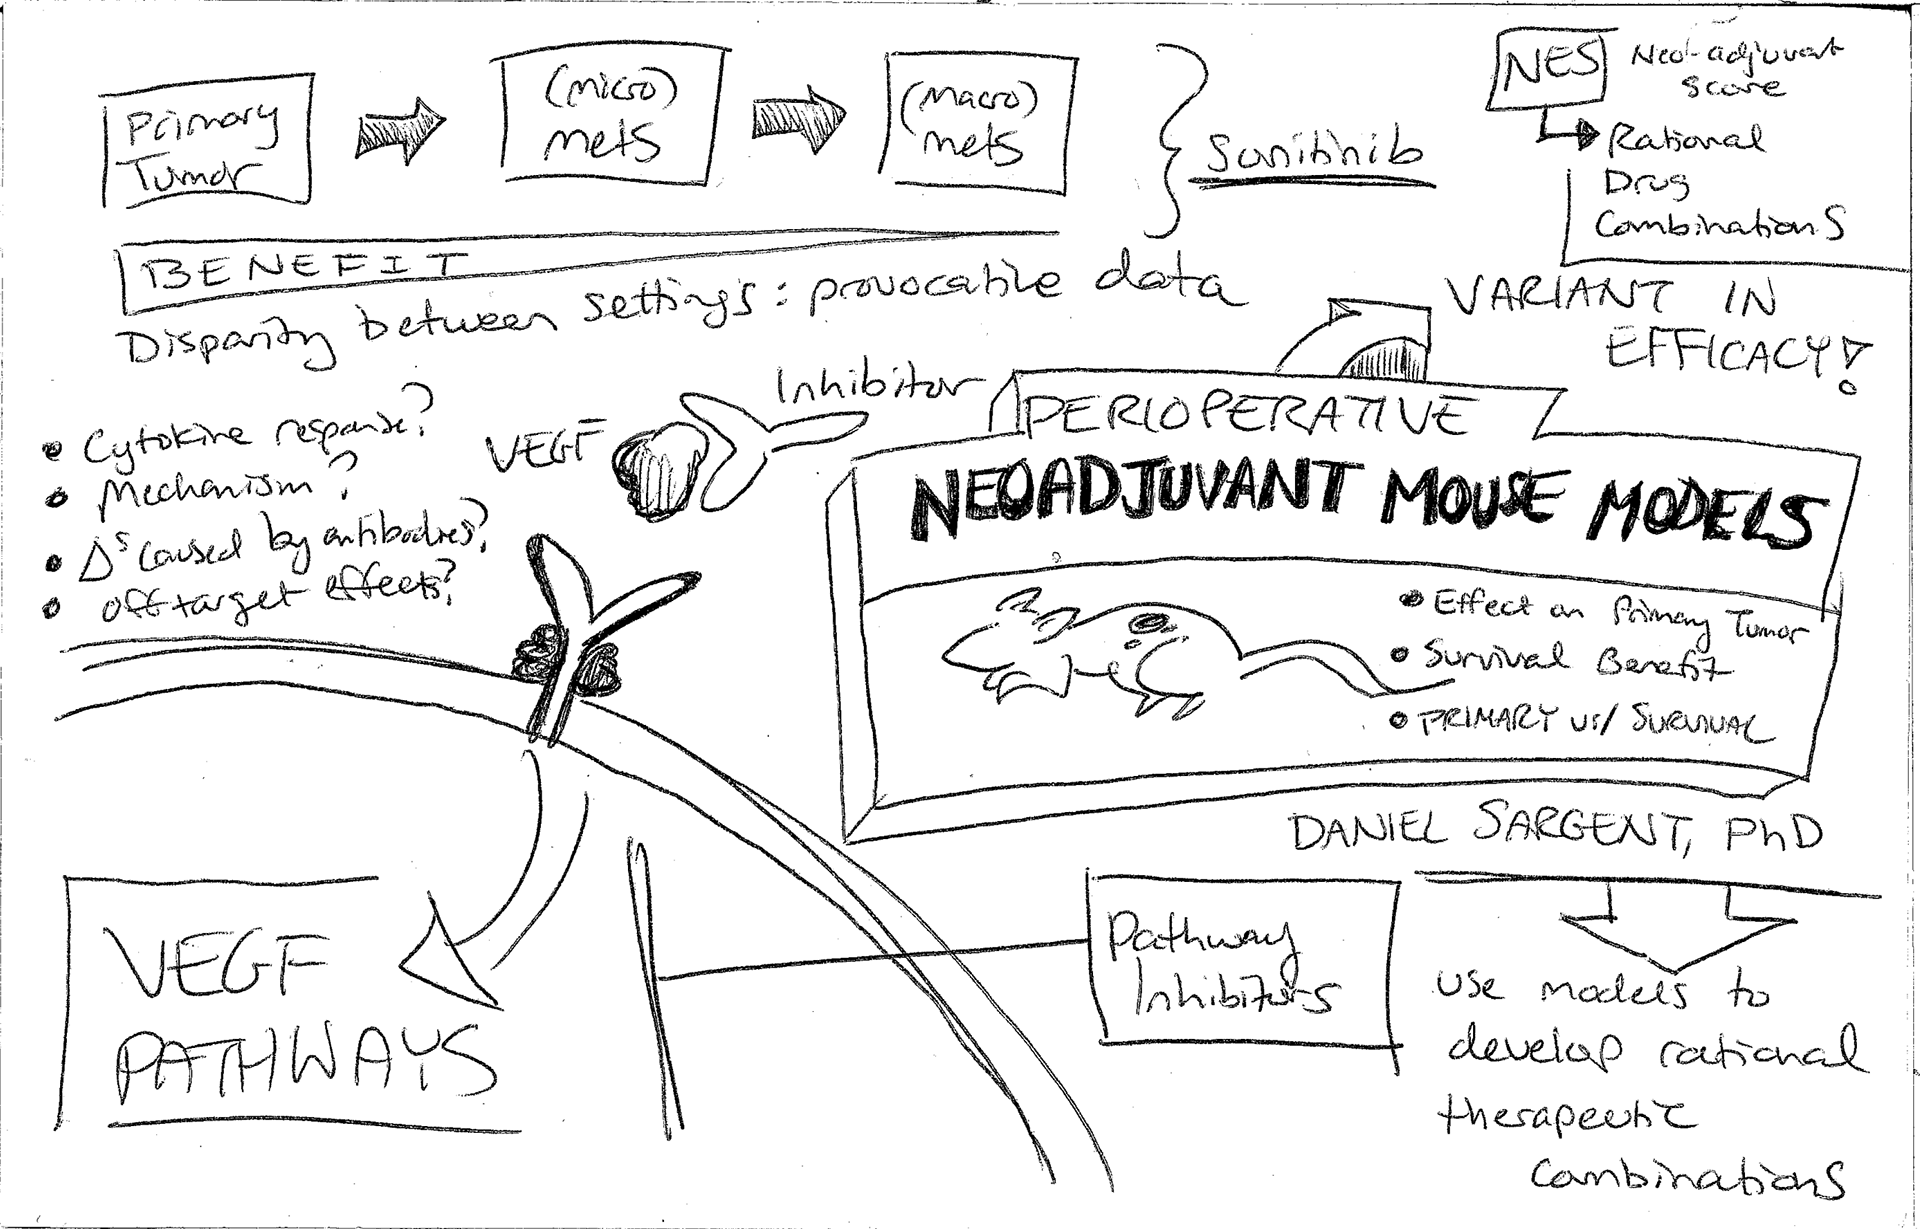 Primary
Tumor
(micro)
mets
(macro)
mets
Sunitinib
NES
Neo-adjuvant
Score
Rational
Drug
Combinations
BENEFIT
Disparity between settings: provocative data
VARIANT IN
EFFICACY!
• Cytokine response?
• Mechanism?
• Δs caused by antibodies?
• off target effects?
VEGF
Inhibitor
PERIOPERATIVE
NEOADJUVANT MOUSE MODELS
• Effect on Primary Tumor
• Survival Benefit
• PRIMARY vs/ SURVIVAL
DANIEL SARGENT, PhD
VEGF
PATHWAYS
Pathway
Inhibitors
use models to
develop rational
therapeutic
combinations